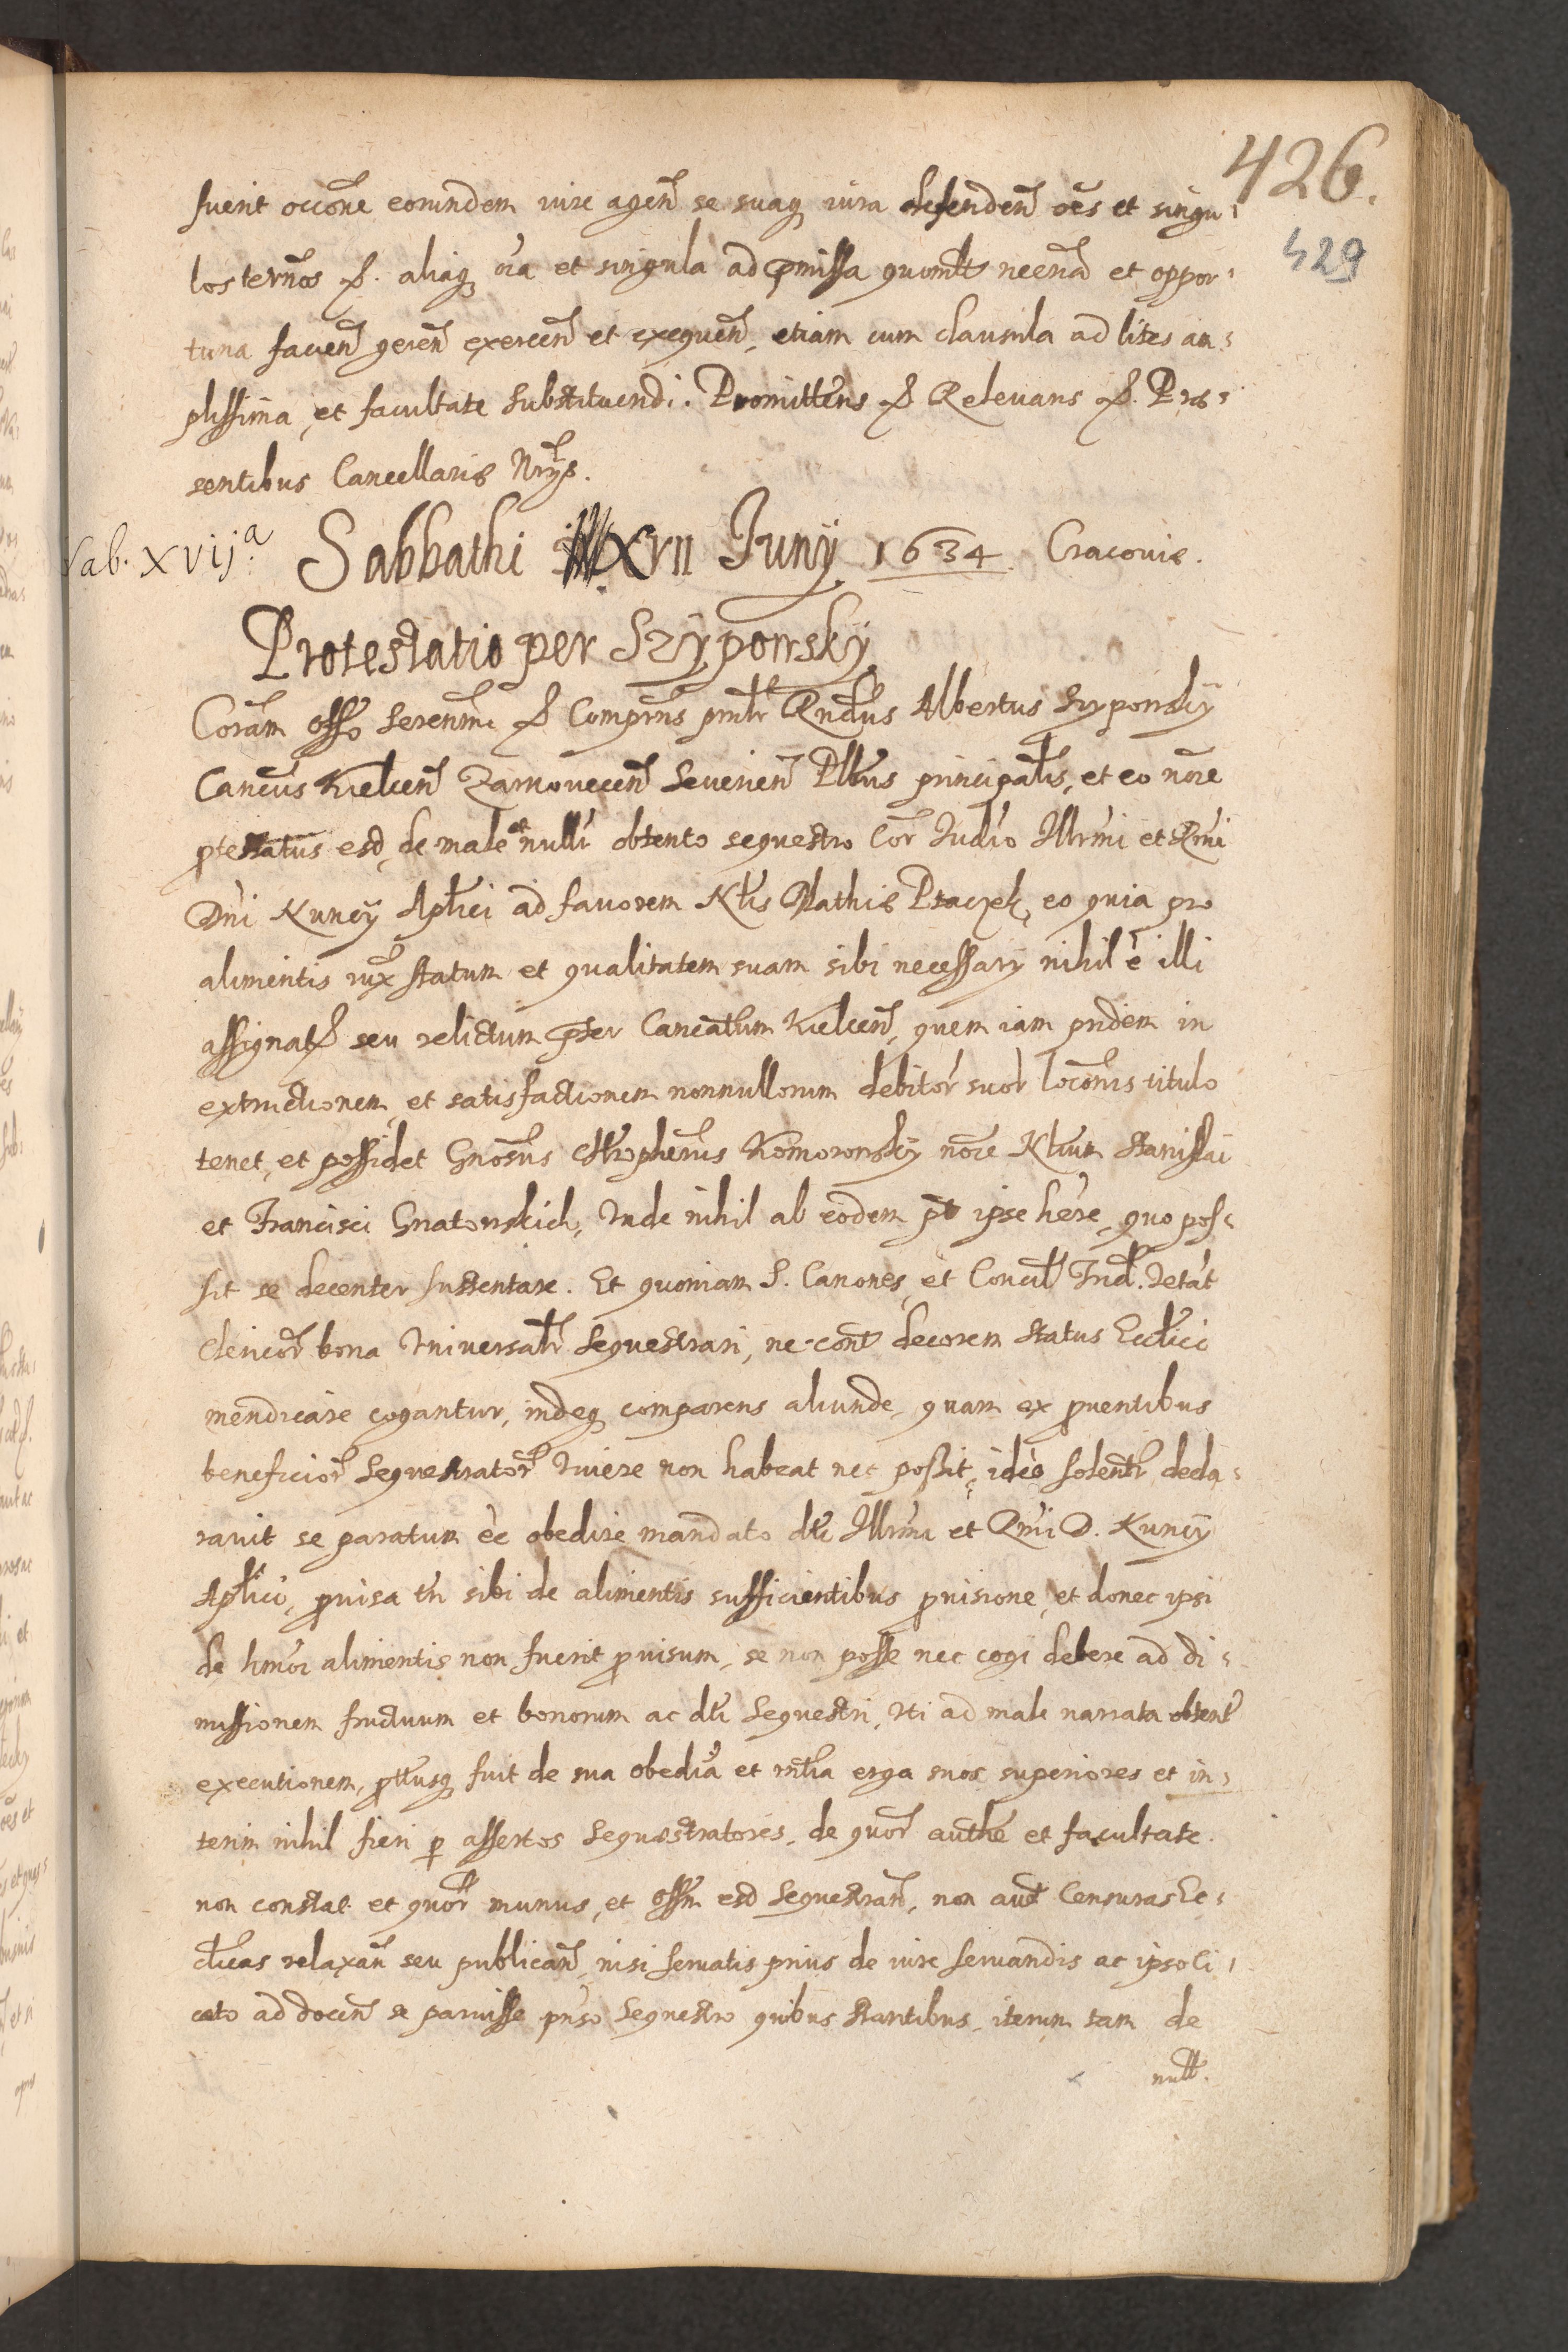 426.
429
fuerit occōne eorundem iure ageñ se suaq₃ iura defendeñ oēs et singu⸗
los termōs &. aliaq₃ oīa et singula ad p̄missa quomlt necen̄a et oppor⸗
tuna facieñ gereñ exerceñ et exequeñ, etiam cum clausula ad lites am⸗
plissima, et facultate substituendi. Promittens & Relevans &. Præ⸗
sentibus Cancellariæ Nr̄ijs.
Sab. xvijᵃ
Sabbathi XVII Junÿ 1634. Cracoviæ.
Protestatio per Szÿpowskÿ
Coram offo Serenmi & Comprn̄s prnlr Rndus Albertus Szypowskÿ
Cancus Kielceñ Zarnoveceñ Severieñ Plbus principalis, et eo noīe
ptestatus est, de male et nullr obtento sequestro Cor Iudīo Illrmi et Rmi
Dn̄i Nuncij Aplici ad favorem Nlis Mathiæ Ptaczek, eo quia pro
alimentis iux statum et qualitatem suam sibi necessarÿ nihil ē illi
assignat seu relictum pter Cancatum Kielceñ, quem iam pridem in
extructionem, et satisfactionem nonnullorum debitor suor loconis titulo
tenet, et possidet Gnosus Chrophorus Komorowskÿ noīe Nlium Stanislai
et Francisci Gnatowskich, Unde nihil ab eodem pt ipse here, quo pos⸗
sit se decenter sustentare. Et quoniam S. Canones, et Concil Trid. vetat
Clericor bona Universalr Sequestrari, ne cont decorem status Ecclici
mendicare cogantur, indeq₃ comparens aliunde, quam ex pventibus
beneficior Sequestrator vivere non habeat nec possit, ideo solentr decla⸗
ravit se paratum ēe obedire mandato dti Illrmi et Rmi D. Nuncij
Aplici, pvisa tn̄ sibi de alimentis sufficientibus pvisione, et donec ipsi
de hmoi alimentis non fuerit pvisum, se non posse nec cogi debere ad di⸗
missionem fructuum et bonorum ac dti Sequestri, uti ad male narrata obtent
executionem, pttusq₃ fuit de sua obedia et rntia erga suos superiores et in⸗
terim nihil fieri p assertos Sequæstratores, de quor authe et facultate
non constat et quor munus, et offm est sequestrañ, non aut Censuras Ec⸗
clicas relaxañ seu publicañ, nisi servatis prius de iure servandis ac ipso ci⸗
tato ad doceñ se paruisse pnso Sequestro quibus stantibus, iterum tam de
null.